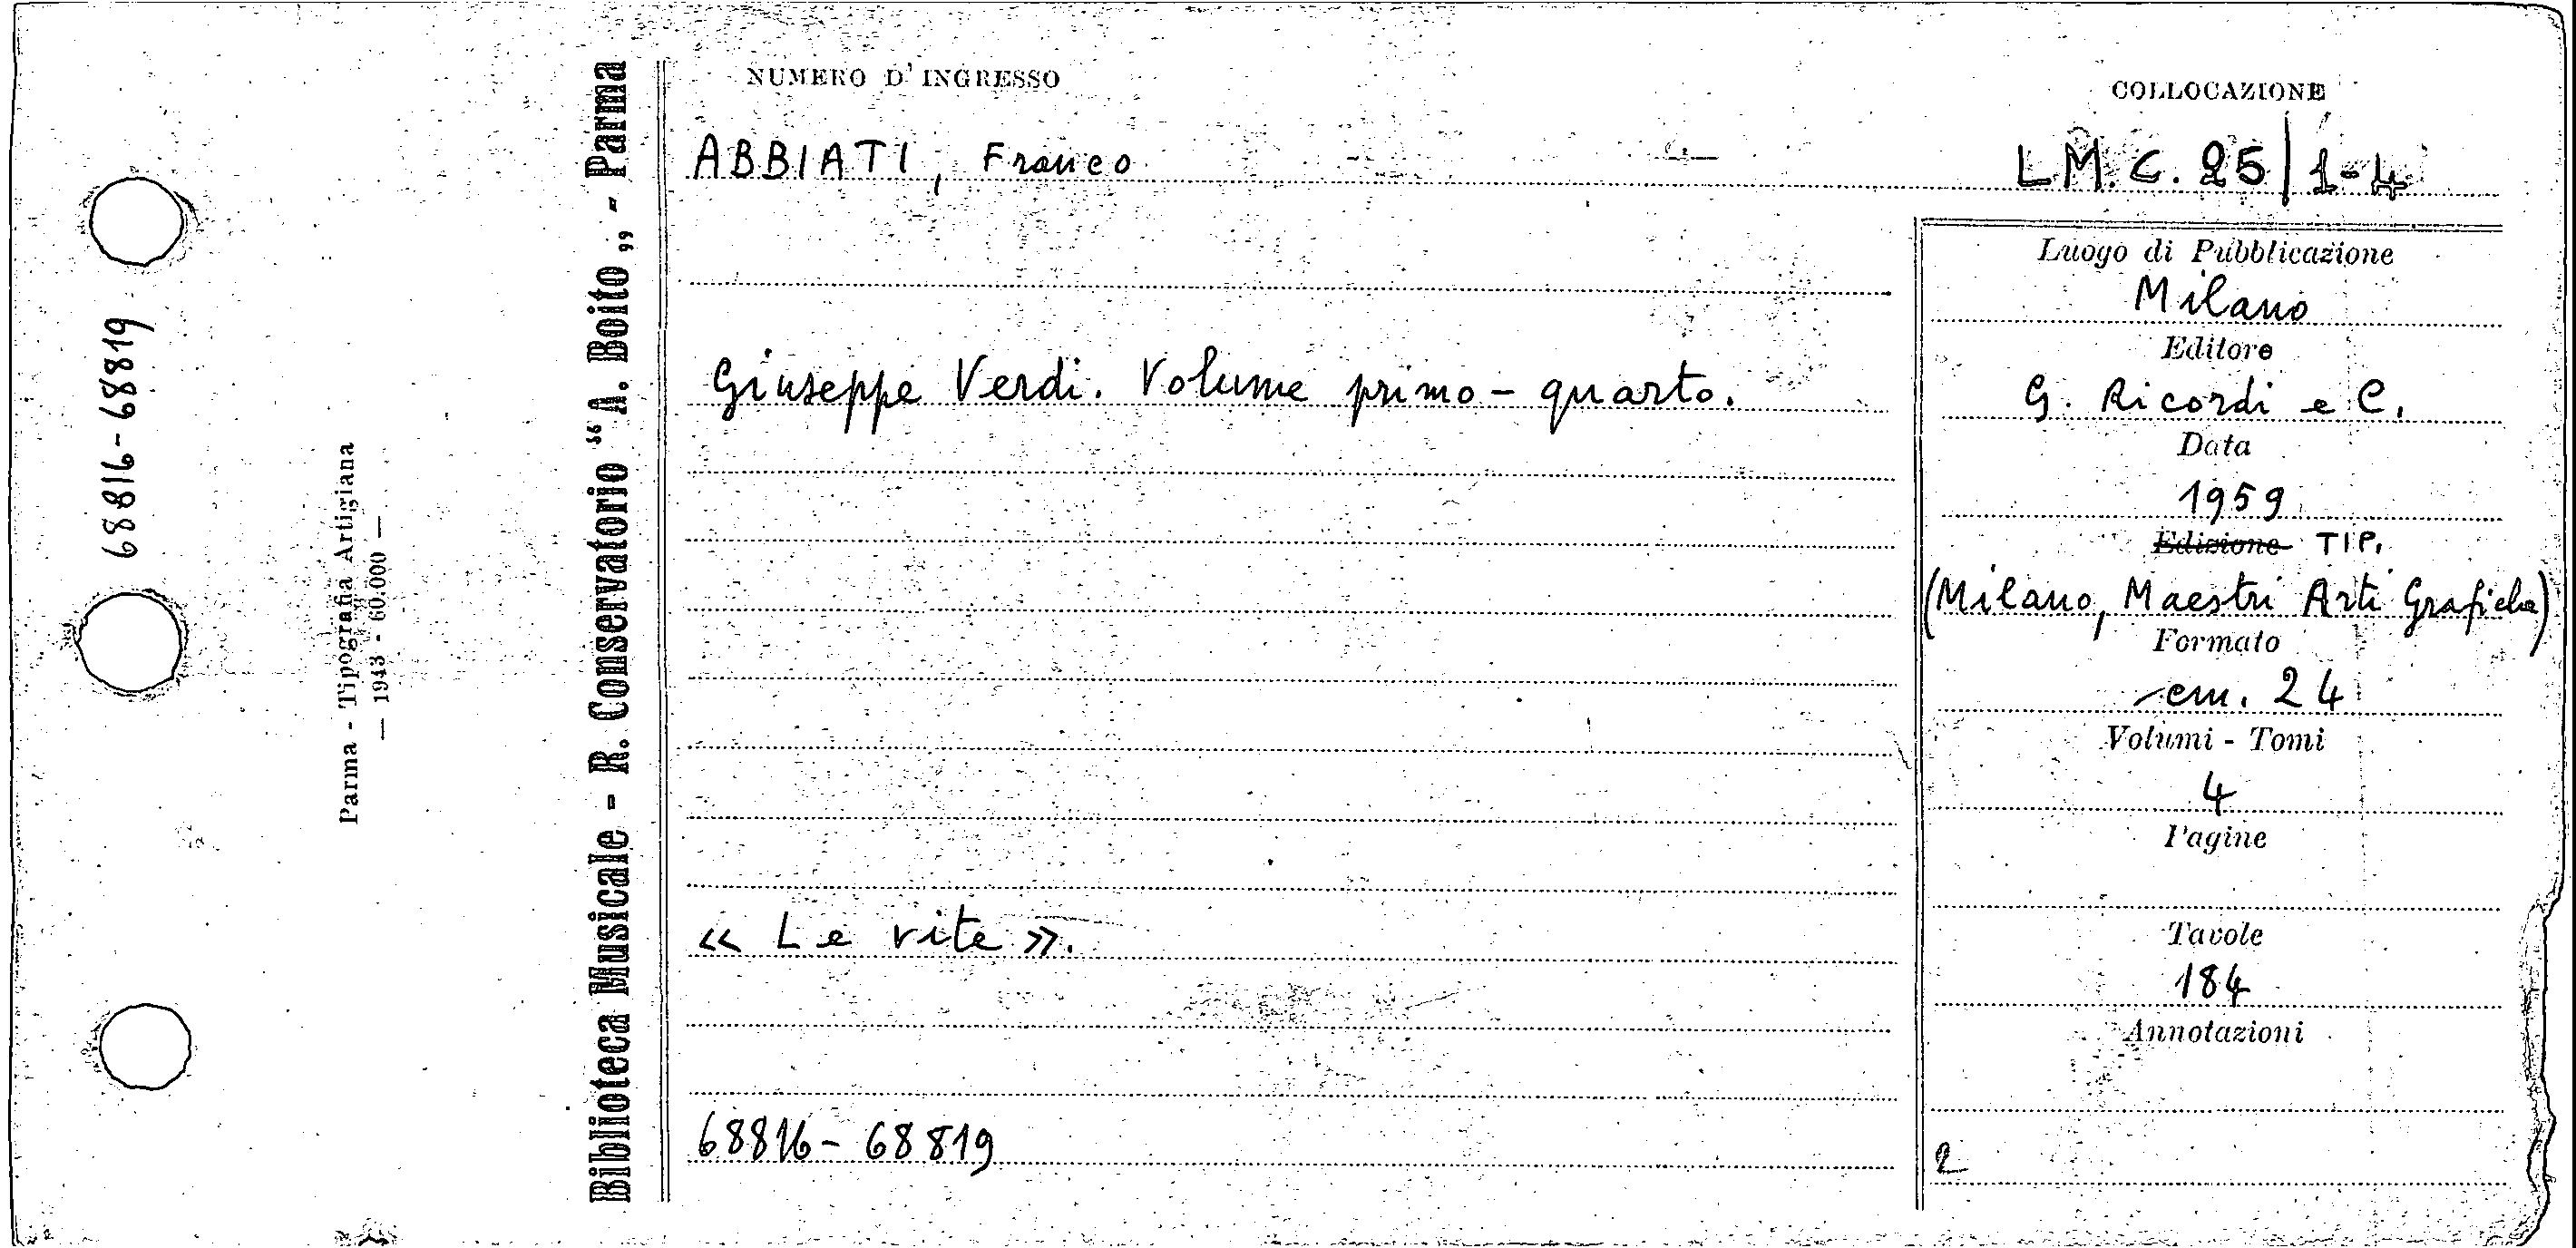 68816-68819
Parma - Tipografia Artigiana
— 1943 - 60.000 —
Biblioteca Musicale - R. Conservatorio “A. Boito„ - Parma
NUMERO D'INGRESSO
COLLOCAZIONE
ABBIATI, Franco
LM.C.25|1-4
Giuseppe Verdi. Volume primo - quarto.
« Le vite ».
68816 - 68819
Luogo di Pubblicazione
Milano
Editore
G. Ricordi e C.
Data
1959
Edizione TIP.
(Milano, Maestri Arti Grafiche)
Formato
cm. 24
Volumi - Tomi
4
Pagine
Tavole
184
Annotazioni
2